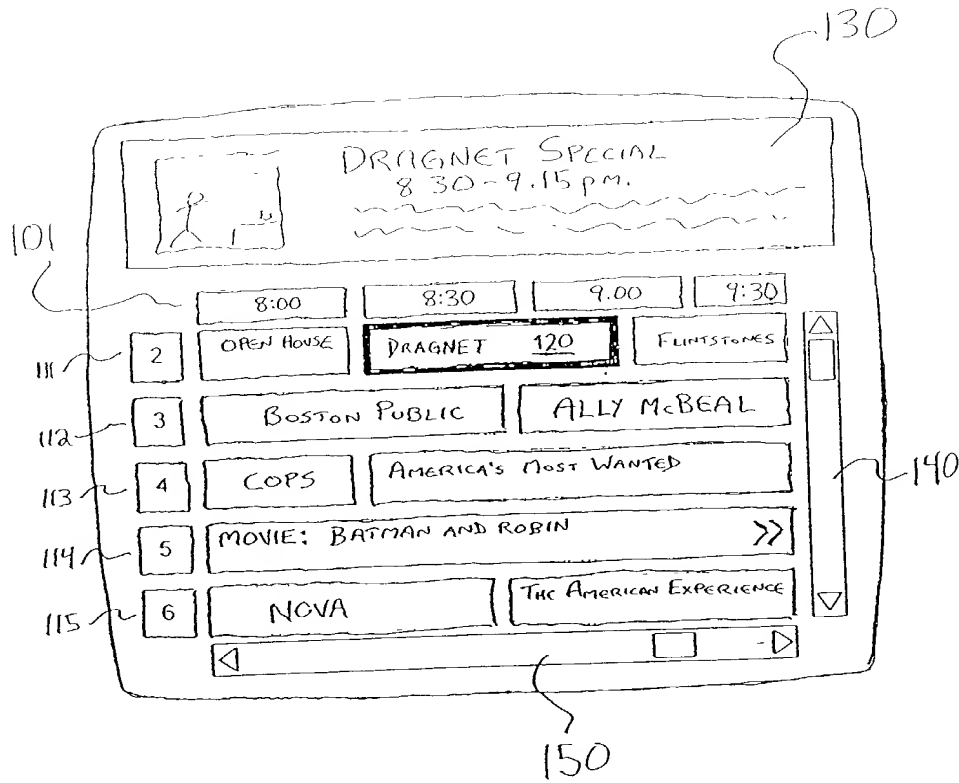 130
DRAGNET SPECIAL
8 30-9.15 pm.
101
8:00 8:30 9.00 9:30
111 2 OPEN HOUSE DRAGNET 120 FLINTSTONES
112 3 BOSTON PUBLIC ALLY McBEAL
113 4 COPS AMERICA'S MOST WANTED
140
114 5 MOVIE: BATMAN AND ROBIN >>
115 6 NOVA THE AMERICAN EXPERIENCE
150